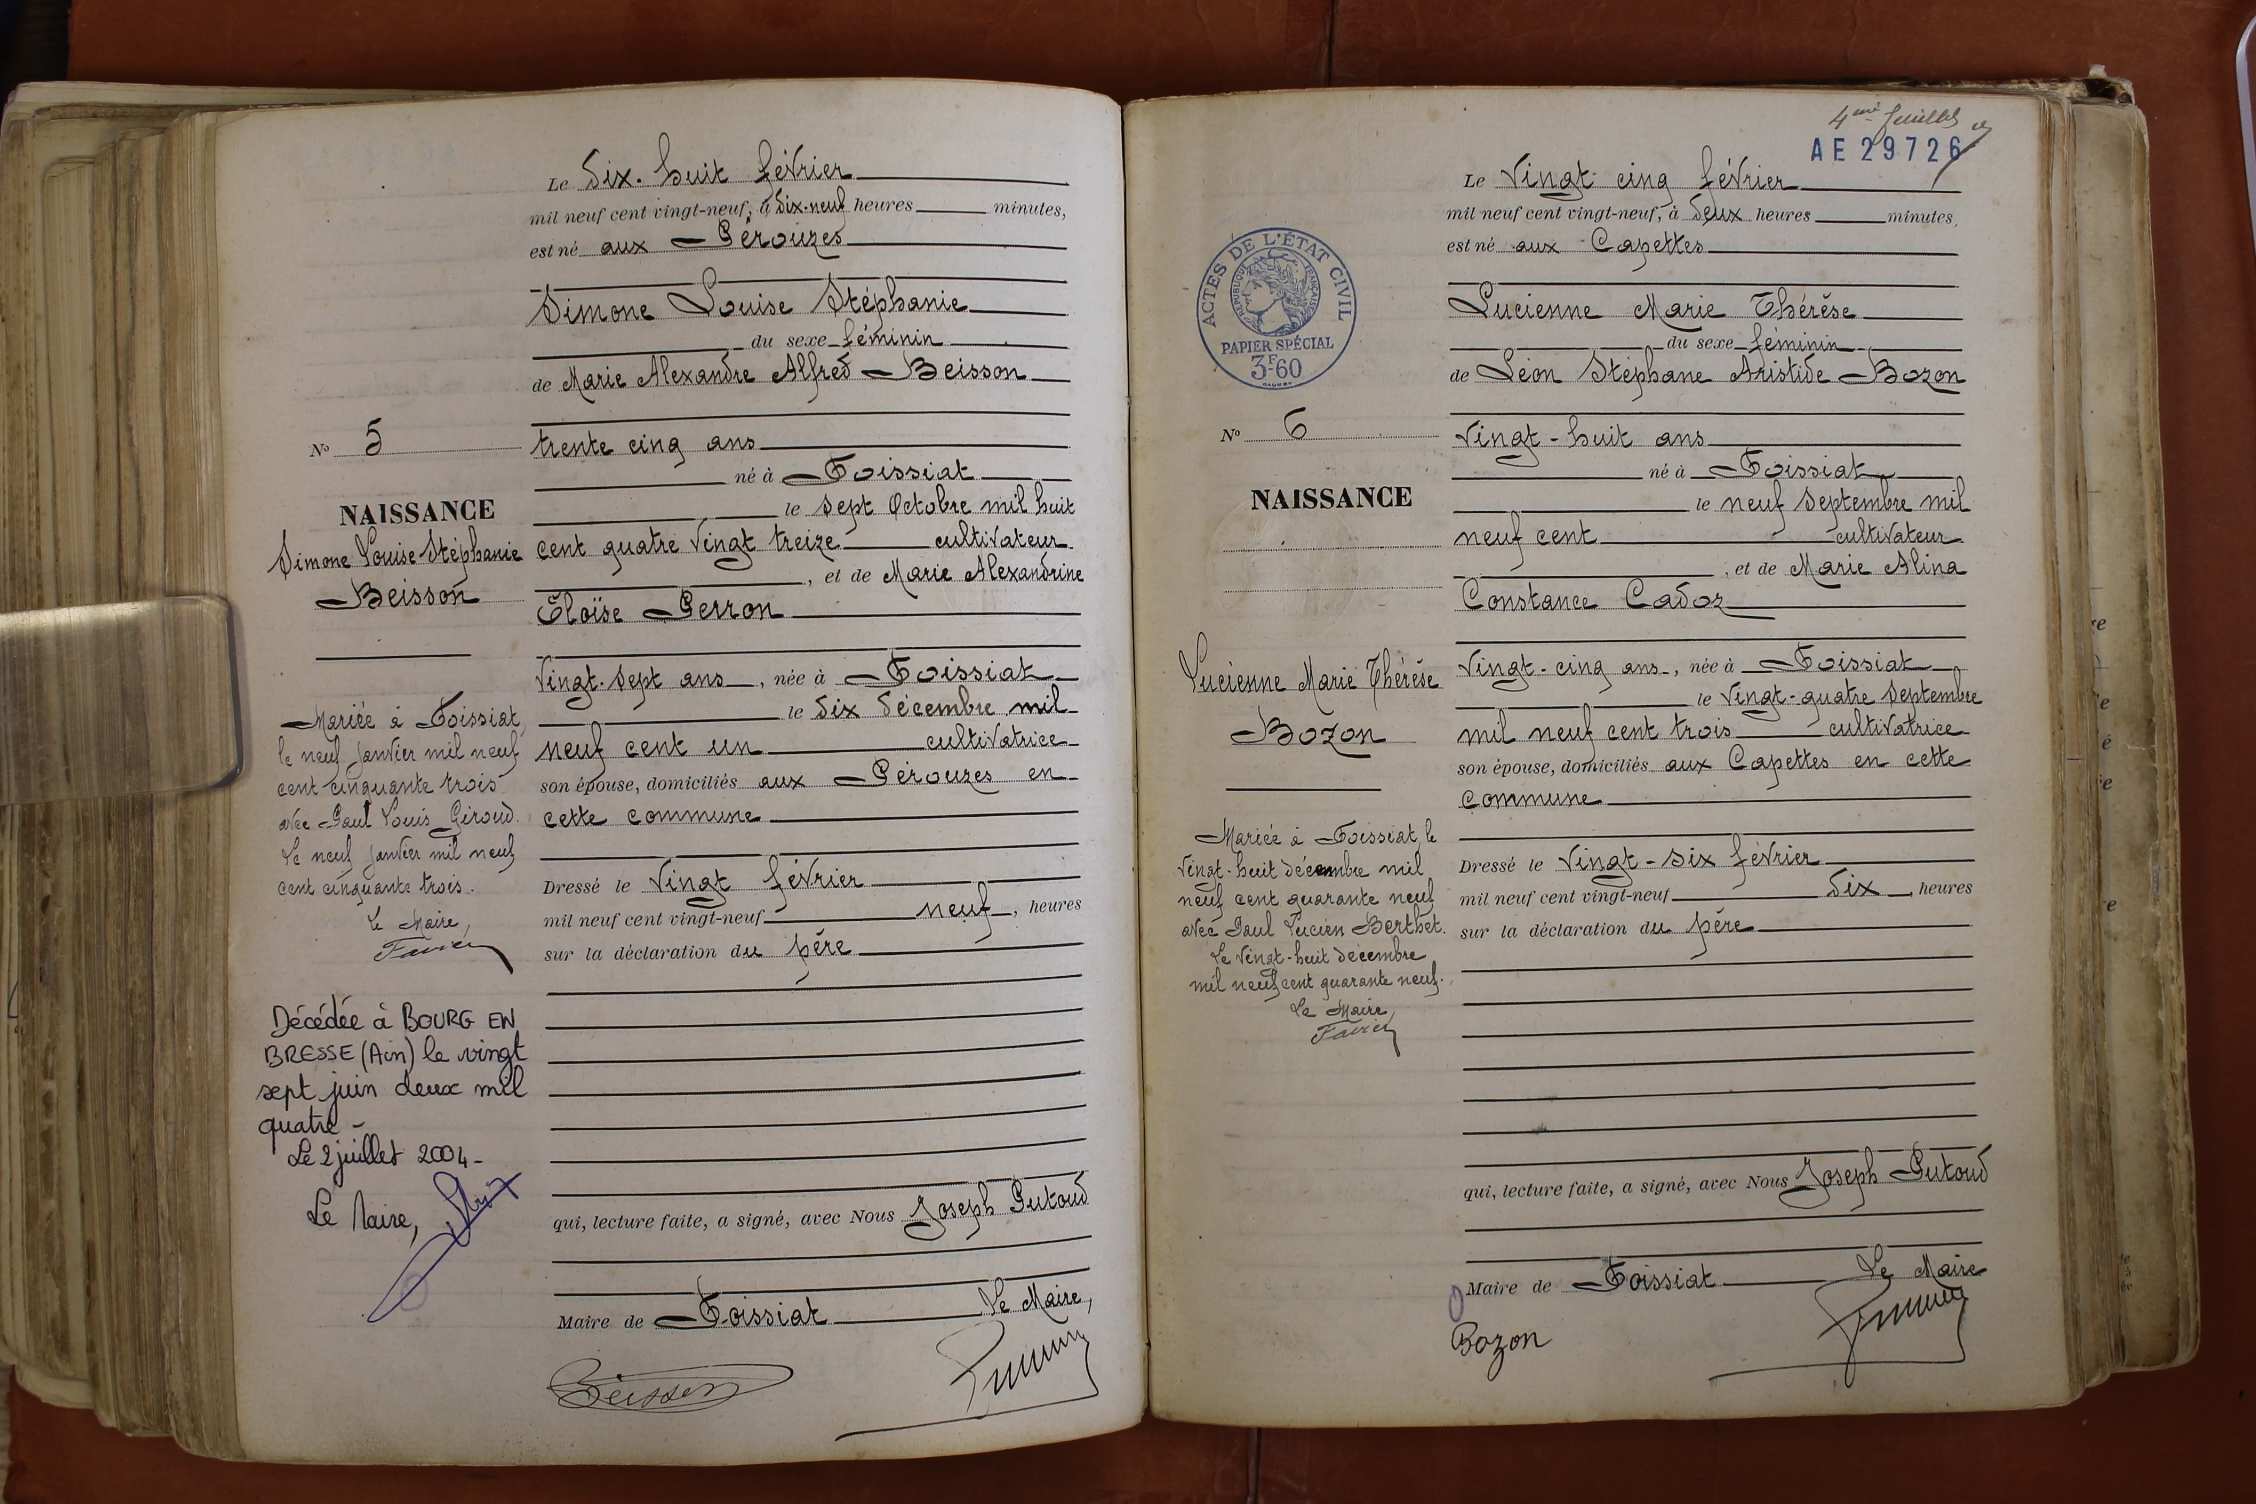 Le dix-huit février
mil neuf cent vingt-neuf, à dix-neuf heures minutes,
est né aux Pérouzes
Simone Louise Stéphanie
du sexe féminin
de Marie Alexandre Alfred Beisson
No 5
trente cinq ans
né à Foissiat
NAISSANCE
le sept Octobre mil huit
Simone Louise Stéphanie
cent quatre vingt treize cultivateur
Beisson
, et de Marie Alexandrine
Eloïse Perron
vingt-sept ans, née à Foissiat
le dix décembre mil
neuf cent un cultivatrice
son épouse, domiciliés aux Pérouzes en
cette commune
Dressé le vingt février
mil neuf cent vingt-neuf neuf, heures
sur la déclaration du père
Mariée à Foissiat,
le neuf janvier mil neuf
cent cinquante trois
avec Paul Louis Giroud.
Le neuf janvier mil neuf
cent cinquante trois.
Le Maire,
Favier
Décédée à BOURG EN
BRESSE (Ain) le vingt
sept juin deux mil
quatre -
Le 2 juillet 2004 -
Le Maire,
qui, lecture faite, a signé, avec Nous Joseph Putoud
Maire de Foissiat Le Maire,
Beisson
4me feuillet
AE 29726
Le vingt-cinq février
mil neuf cent vingt-neuf, à deux heures minutes,
est né aux Capettes
ACTES DE L'ÉTAT CIVIL
RÉPUBLIQUE FRANÇAISE
PAPIER SPÉCIAL
3F60
Lucienne Marie Thérèse
du sexe féminin
de Léon Stéphane Aristide Bozon
No 6
vingt-huit ans
né à Foissiat
NAISSANCE
le neuf septembre mil
neuf cent cultivateur
, et de Marie Alina
Constance Cadoz
Lucienne Marie Thérèse
Bozon
vingt-cinq ans, née à Foissiat
le vingt-quatre septembre
mil neuf cent trois cultivatrice
son épouse, domiciliés aux Capettes en cette
commune
Dressé le vingt-six février
mil neuf cent vingt-neuf dix, heures
sur la déclaration du père
Mariée à Foissiat le
vingt-huit décembre mil
neuf cent quarante neuf
avec Paul Lucien Berthet.
Le vingt-huit décembre
mil neuf cent quarante neuf.
Le Maire,
Favier
qui, lecture faite, a signé, avec Nous Joseph Putoud
Maire de Foissiat Le Maire
Bozon